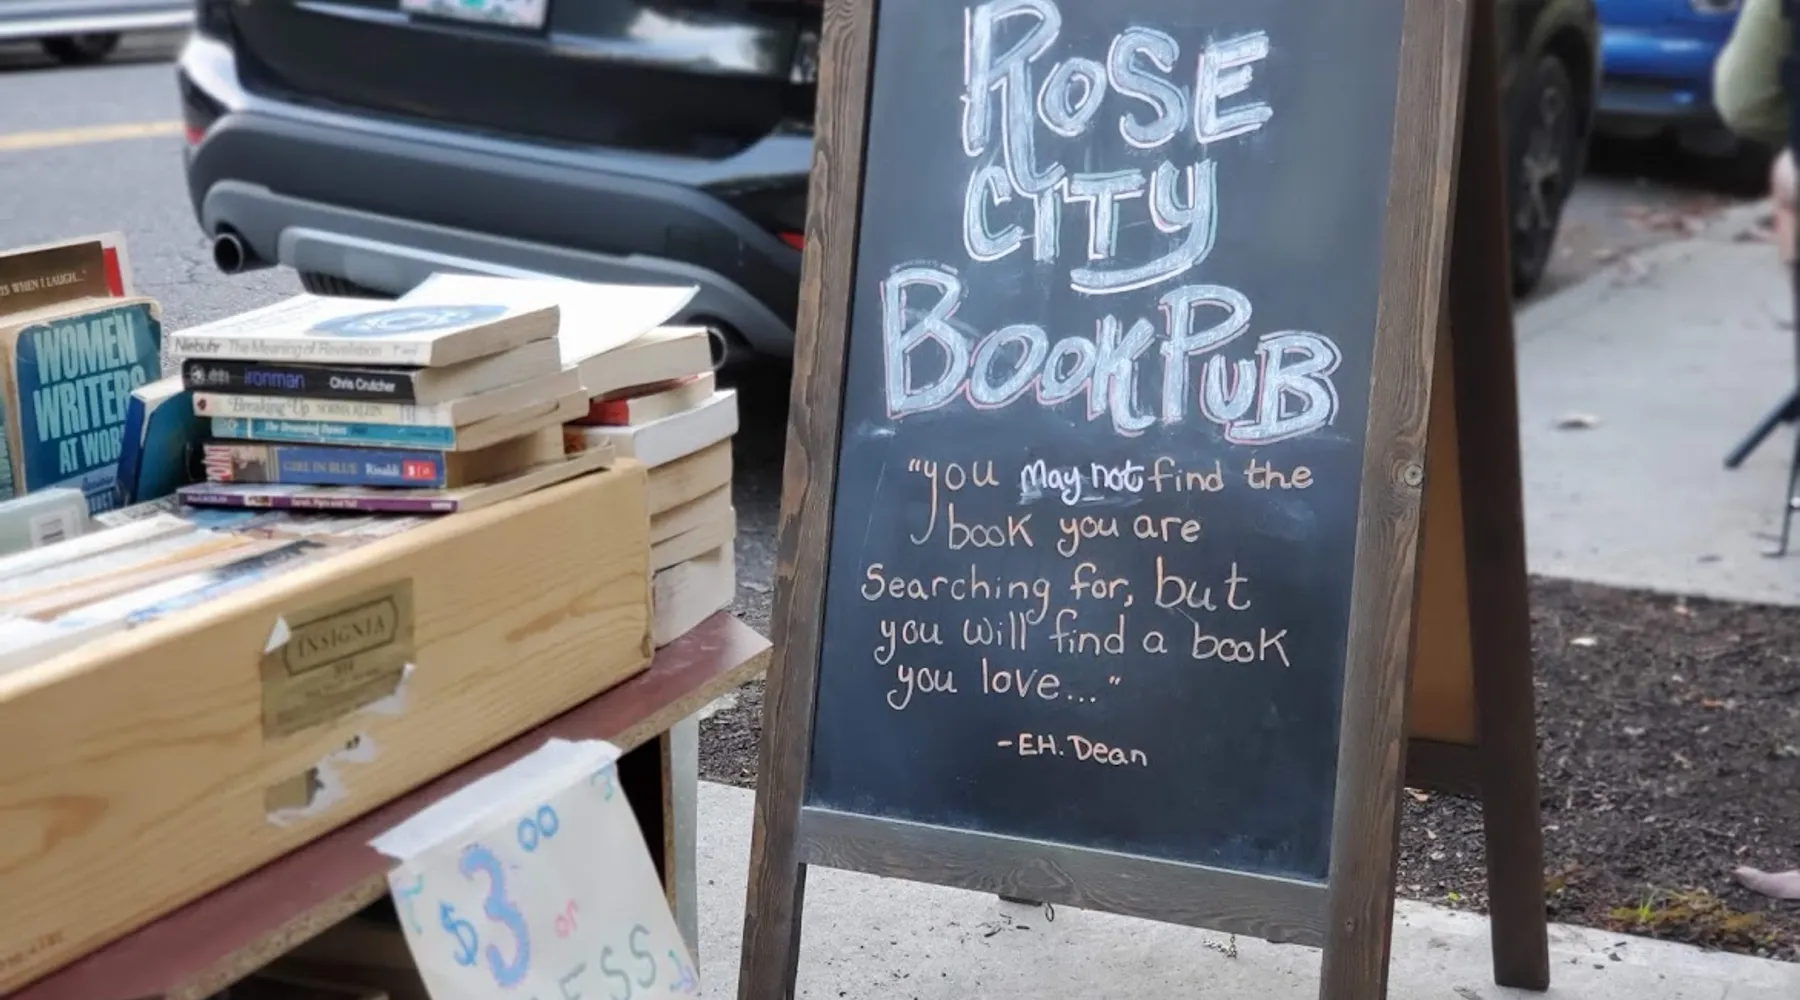 ROSE
CITY
BOOKPUB
"you may not find the
book you are
Searching for, but
you will find a book
you love..."
-E.H. Dean
WHEN I LAUGH..."
WOMEN
WRITERS
AT WORK
Niebuhr The Meaning of Revelation
ironman Chris Crutcher
Breaking Up NORMA KLEIN
GIRL IN BLUE Rinaldi
INSIGNIA
$3.00
or
LESS